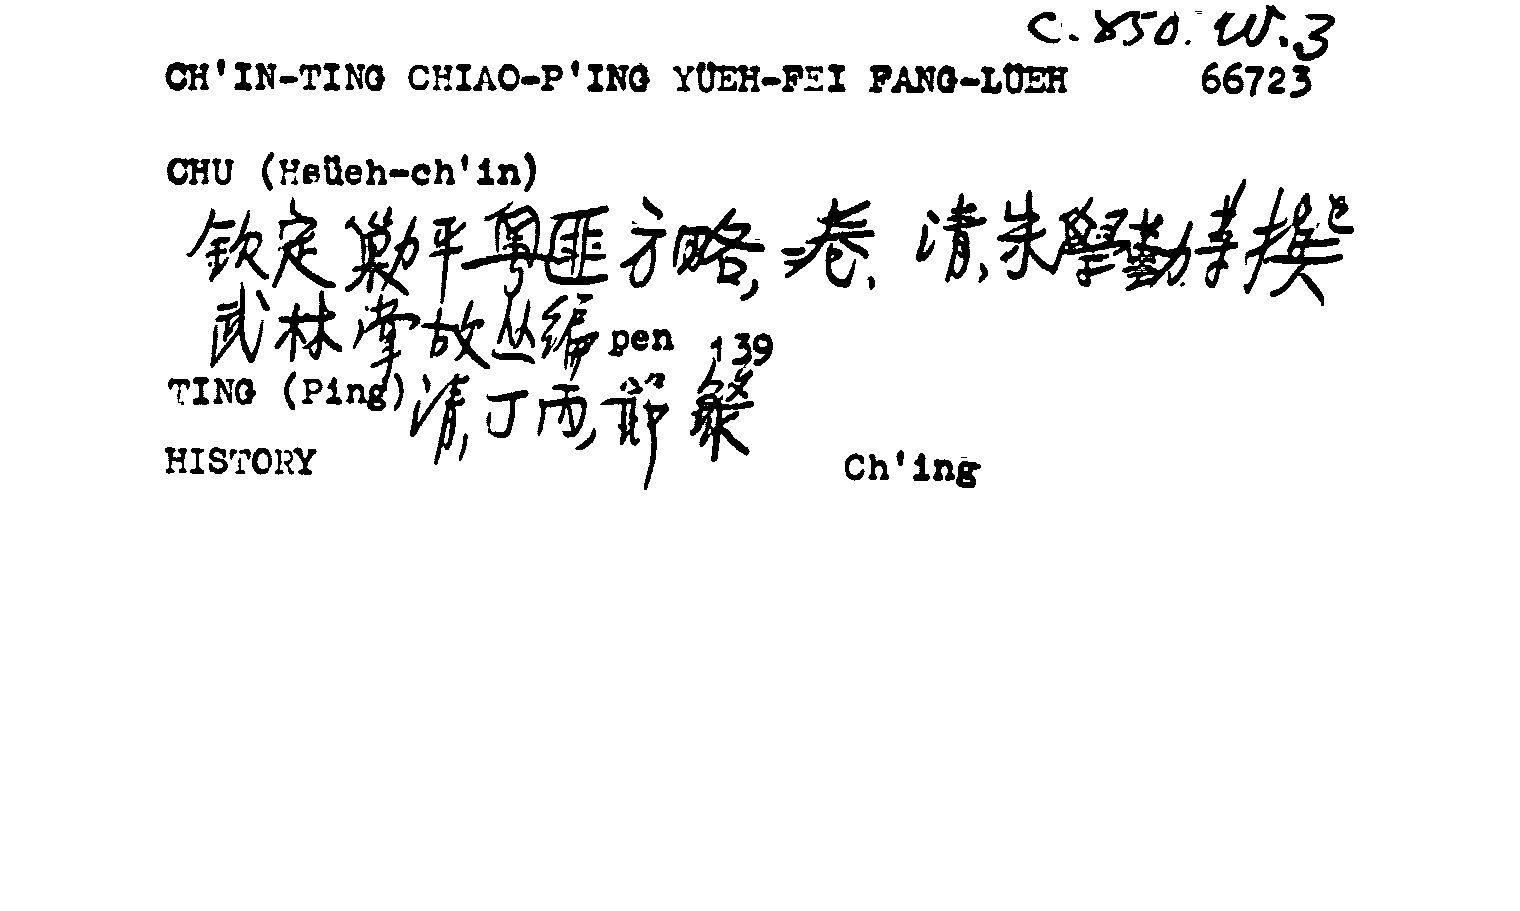 C.850.W.3
CH'IN-TING CHIAO-P'ING YÜEH-FEI FANG-LÜEH 66723
CHU (Hsüeh-ch'in)
欽定勦平粤匪方略, 二卷, 清, 朱學勤等撰
武林掌故丛編 pen 139
TING (Ping) 清, 丁丙, 節錄
HISTORY Ch'ing